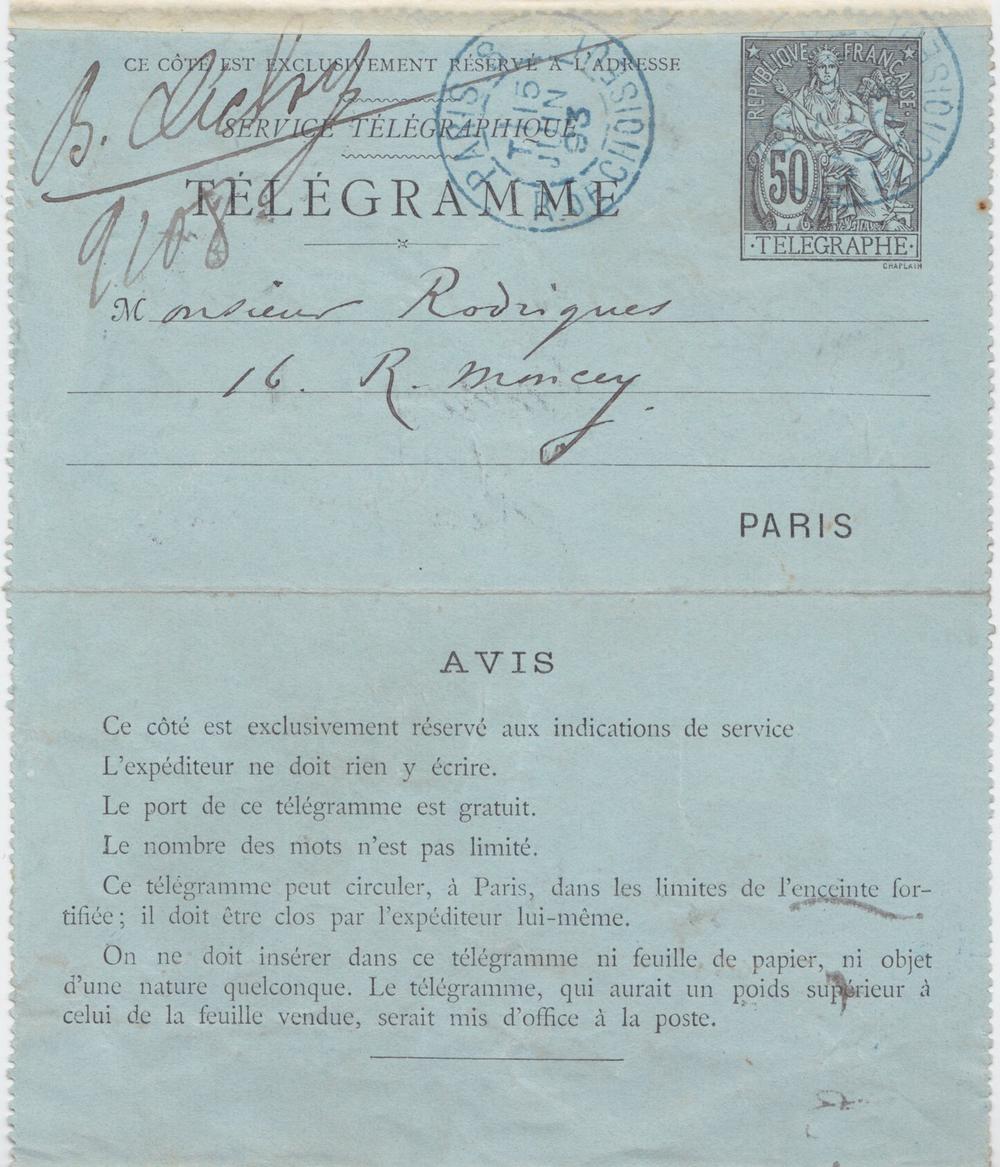 CE CÔTÉ EST EXCLUSIVEMENT RÉSERVÉ A L'ADRESSE
B.
SERVICE TÉLÉGRAPHIQUE
TÉLÉGRAMME
9108
PARIS
15
JUIN
93
R. DE CHOISEUL
RÉPUBLIQUE FRANÇAISE
50
TELEGRAPHE
CHAPLAIN
Monsieur Rodrigues
16. R. Moncey.
PARIS
AVIS
Ce côté est exclusivement réservé aux indications de service
L'expéditeur ne doit rien y écrire.
Le port de ce télégramme est gratuit.
Le nombre des mots n'est pas limité.
Ce télégramme peut circuler, à Paris, dans les limites de l'enceinte for-
tifiée; il doit être clos par l'expéditeur lui-même.
On ne doit insérer dans ce télégramme ni feuille de papier, ni objet
d'une nature quelconque. Le télégramme, qui aurait un poids supérieur à
celui de la feuille vendue, serait mis d'office à la poste.